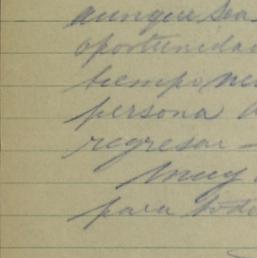 aunque sea
oportunidad
tiempo ne
persona
regresar -
Muy
para todo